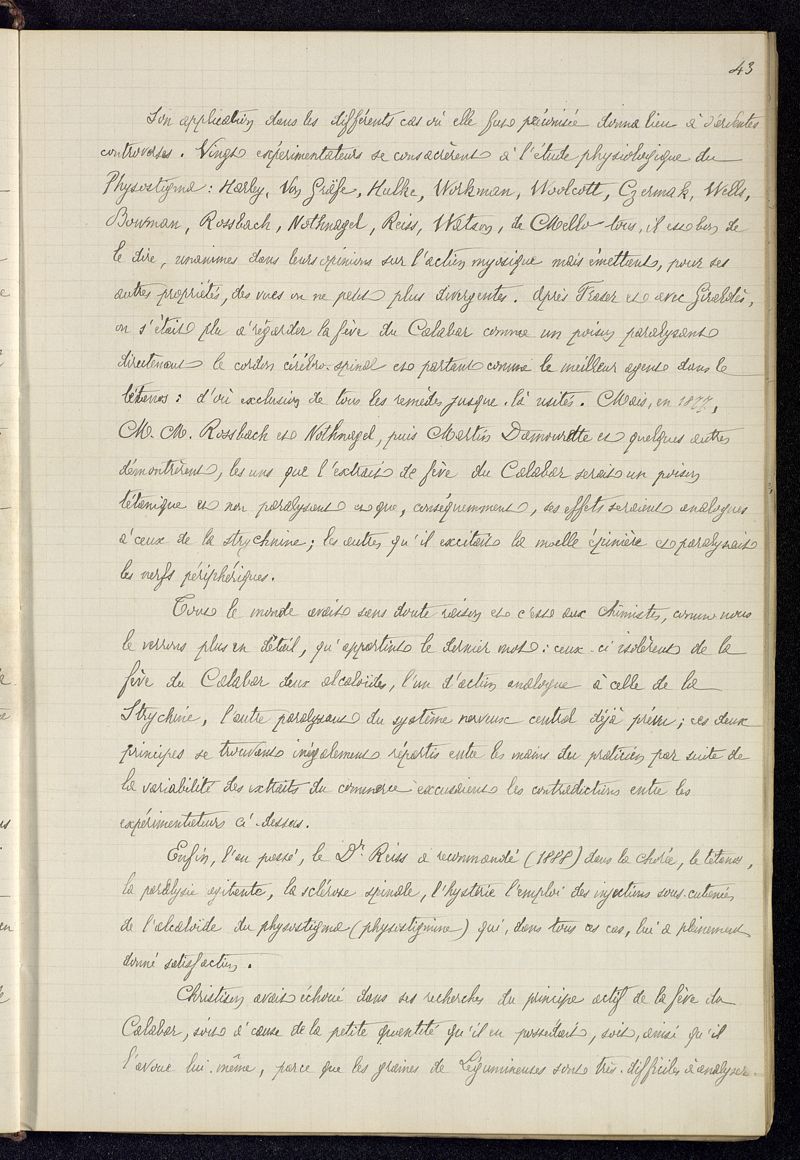 43
Son application dans les différents cas où elle fut préconisée donna lieu à d'ardentes
controverses. Vingt expérimentateurs se consacrèrent à l'étude physiologique du
Physostigma : Harley, Von Gräfe, Hulke, Workman, Woolcott, Czermak, Wells,
Bowman, Rossbach, Nothnagel, Reiss, Watson, de Mello tous, il est bon de
le dire, unanimes dans leurs opinions sur l'action myosique mais émettant, pour ses
autres propriétés, des vues on ne peut plus divergentes. Après Fraser et avec Giraldès,
on s'était plu à regarder la fève du Calabar comme un poison paralysant
directement le cordon cérébro-spinal et partant comme le meilleur agent dans le
tétanos : d'où exclusion de tous les remèdes jusque-là usités. Mais, en 1877,
M. M. Rossbach et Nothnagel, puis Martin Damourette et quelques autres
démontrèrent, les uns que l'extrait de fève du Calabar serait un poison
tétanique et non paralysant et que, conséquemment, ses effets seraient analogues
à ceux de la strychnine ; les autres qu'il excitait la moelle épinière et paralysait
les nerfs périphériques.
Tout le monde avait sans doute raison et c'est aux chimistes, comme nous
le verrons plus en détail, qu'appartint le dernier mot : ceux-ci isolèrent de la
fève du Calabar deux alcaloïdes, l'un d'action analogue à celle de la
Strychine, l'autre paralysant du système nerveux central déjà prévu ; ces deux
principes se trouvant inégalement répartis entre les mains du praticien par suite de
la variabilité des extraits du commerce excusaient les contradictions entre les
expérimentateurs ci-dessus.
Enfin, l'an passé, le Dr Reiss a recommandé (1888) dans la chorée, le tétanos,
la paralysie agitante, la sclérose spinale, l'hystérie l'emploi des injections sous-cutanées
de l'alcaloïde du physostigma (physostigmine) qui, dans tous ces cas, lui a pleinement
donné satisfaction.
Christison avait échoué dans ses recherches du principe actif de la fève du
Calabar, soit à cause de la petite quantité qu'il en possédait, soit, ainsi qu'il
l'avoue lui-même, parce que les graines de Légumineuses sont très-difficiles à analyser.